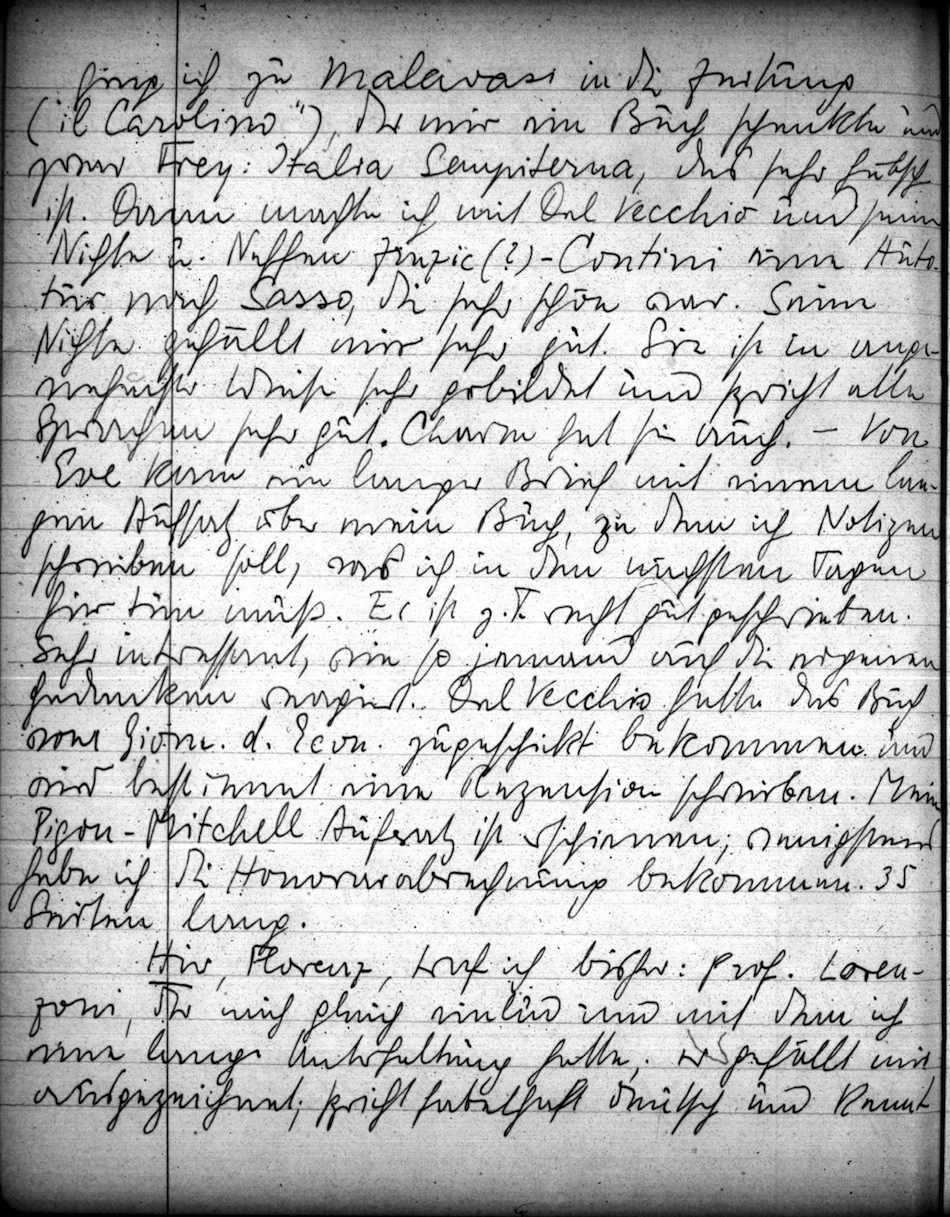 ging ich zu Malavasi in die Zeitung
("il Carolino"), der mir ein Buch schenkte und
zwar Frey: Italia Sempiterna, das sehr hübsch
ist. Dann machte ich mit Del Vecchio und seiner
Nichte u. Neffen (?)-Contini eine Auto-
tour nach Sasso, die sehr schön war. Seine
Nichte gefällt mir sehr gut. Sie ist in ange-
nehmster Weise sehr gebildet und spricht alle
Sprachen sehr gut. Charm hat sie auch. – Von
Eve kam ein langer Brief mit einem lan-
gen Aufsatz über mein Buch, zu dem ich Notizen
schreiben soll, was ich in den nächsten Tagen
hier tun muß. Er ist z.T. recht gut geschrieben.
Sehr interessant, wie so jemand auf die eigenen
Gedanken reagiert. Del Vecchio hatte das Buch
vom Giorn. d. Econ. zugeschickt bekommen und
wird bestimmt eine Rezension schreiben. Mein
Pigou-Mitchell Aufsatz ist erschienen; wenigstens
habe ich die Honorarabrechnung bekommen. 35
Seiten lang.
Hier, Florenz, traf ich bisher: Prof. Loren-
zoni, der mich gleich einlud und mit dem ich
eine lange Unterhaltung hatte; er gefällt mir
ausgezeichnet; spricht fabelhaft deutsch und kennt